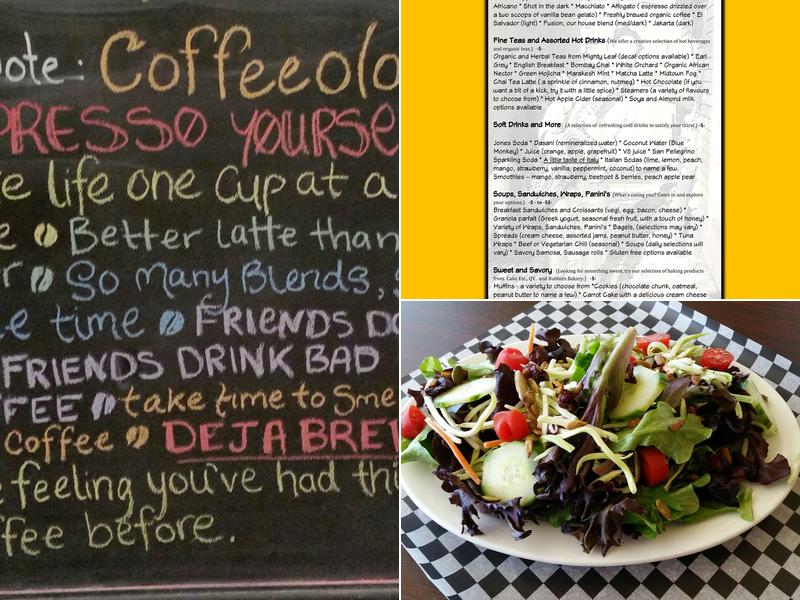 ote: Coffeeolo
PRESSO YOURSE
e life one Cup at a
e Better latte than
r So Many Blends, s
e time FRIENDS DO
FRIENDS DRINK BAD
FFEE take time to Sme
Coffee DEJA BREW
e feeling you've had thi
ffee before.
Africano * Shot in the dark * Macchiato * Affogato ( espresso drizzled over
a two scoops of vanilla bean gelato) * Freshly brewed organic coffee * El
Salvador (light) * Fusion, our house blend (med/dark) * Jakarta (dark)
Fine Teas and Assorted Hot Drinks (We offer a creative selection of hot beverages
and organic teas.) -$-
Organic and Herbal Teas from Mighty Leaf (decaf options available) * Earl
Grey * English Breakfast * Bombay Chai * White Orchard * Organic African
Nectar * Green Hojicha * Marakesh Mint * Matcha Latte * Midtown Fog *
Chai Tea Latte ( a sprinkle of cinnamon, nutmeg) * Hot Chocolate (if you
want a bit of a kick, try it with a little spice) * Steamers (a variety of flavours
to choose from) * Hot Apple Cider (seasonal) * Soya and Almond milk
options available
Soft Drinks and More (A selection of refreshing cold drinks to satisfy your thirst.) -$-
Jones Soda * Dasani (remineralized water) * Coconut Water (Blue
Monkey) * Juice (orange, apple, grapefruit) * V8 juice * San Pellegrino
Sparkling Soda * A little taste of Italy * Italian Sodas (lime, lemon, peach,
mango, strawberry, vanilla, peppermint, coconut) to name a few.
Smoothies – mango, strawberry, beetroot & berries, peach apple pear
Soups, Sandwiches, Wraps, Panini's (What's eating you? Come in and explore
your options.) -$ - to -$$-
Breakfast Sandwiches and Croissants (vegi, egg, bacon, cheese) *
Granola parfait (Greek yogurt, seasonal fresh fruit, with a touch of honey) *
Variety of Wraps, Sandwiches, Panini's * Bagels, (selections may vary) *
Spreads (cream cheese, assorted jams, peanut butter, honey) * Tuna
Wraps * Beef or Vegetarian Chili (seasonal) * Soups (daily selections will
vary) * Savory Samosa, Sausage rolls * Gluten free options available
Sweet and Savory (Looking for something sweet, try our selection of baking products
from Cake Etc., QV, and Bubbies Bakery.) -$-
Muffins - a variety to choose from *Cookies (chocolate chunk, oatmeal,
peanut butter to name a few) * Carrot Cake with a delicious cream cheese